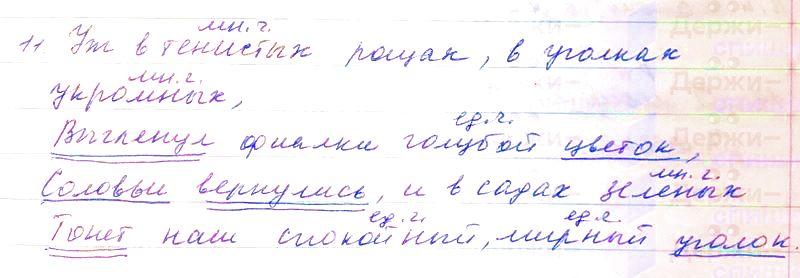 11. Уж в тенистых рощах, в уголках
мн. ч.
укромных,
мн. ч.
Выглянул фиалки голубой цветок,
ед. ч.
Соловьи вернулись, и в садах зеленых
мн. ч.
Тонет наш спокойный, мирный уголок.
ед. ч. ед. ч.
Держи-
Держи-
Держи-